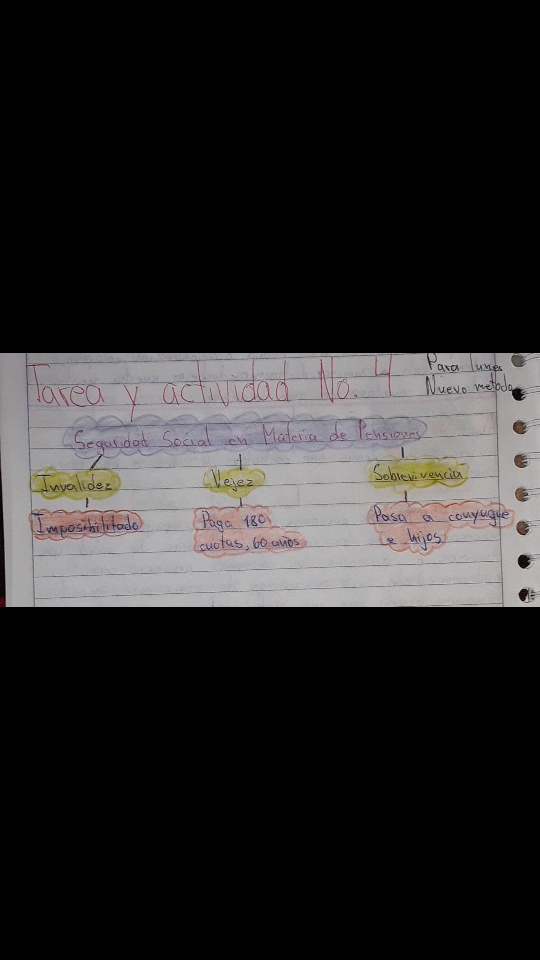 Para lunes
Tarea y actividad No. 4
Nuevo metodo
Seguridad Social en Materia de Pensiones
Invalidez
Vejez
Sobrevivencia
Imposibilitado
Paga 180
cuotas, 60 años
Pasa a conyugue
e hijos